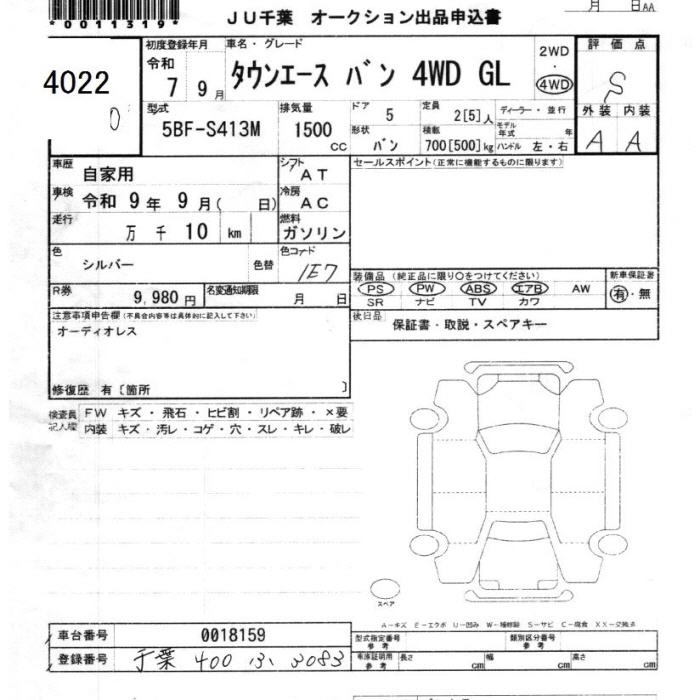 *0011319*
JU千葉 オークション出品申込書
月 日AA
4022
初度登録年月 車名・グレード
令和 7 9月
タウンエース バン 4WD GL
2WD ・ 4WD
評価点
S
外装 内装
A A
型式 5BF-S413M
排気量 1500 cc
ドア 5
形状 バン
定員 2[5]人
積載 700[500]kg
ディーラー・並行
モデル年式 年
ハンドル 左・右
車歴 自家用
シフト AT
セールスポイント(正常に機能するものに限ります)
車検 令和 9年 9月( 日)
冷房 AC
走行 万 千 10 km
燃料 ガソリン
色 シルバー 色替
色コード 1E7
装備品(純正品に限り○をつけてください)
PS PW ABS エアB AW
SR ナビ TV カワ
新車保証書
有・無
R券 9,980円
名変通知期限 月 日
注意事項申告欄(不具合内容等は具体的に記入して下さい)
オーディオレス
後日品 保証書・取説・スペアキー
修復歴 有〔箇所 〕
検査員記入欄
FW キズ・飛石・ヒビ割・リペア跡・×要
内装 キズ・汚レ・コゲ・穴・スレ・キレ・破レ
スペア
A-キズ E-エクボ U-凹み W-補修跡 S-サビ C-腐食 XX-交換済
車台番号 0018159
型式指定番号 参考
類別区分番号 参考
登録番号 千葉 400 い 3083
車庫証明用 参考 長さ cm 幅 cm 高さ cm